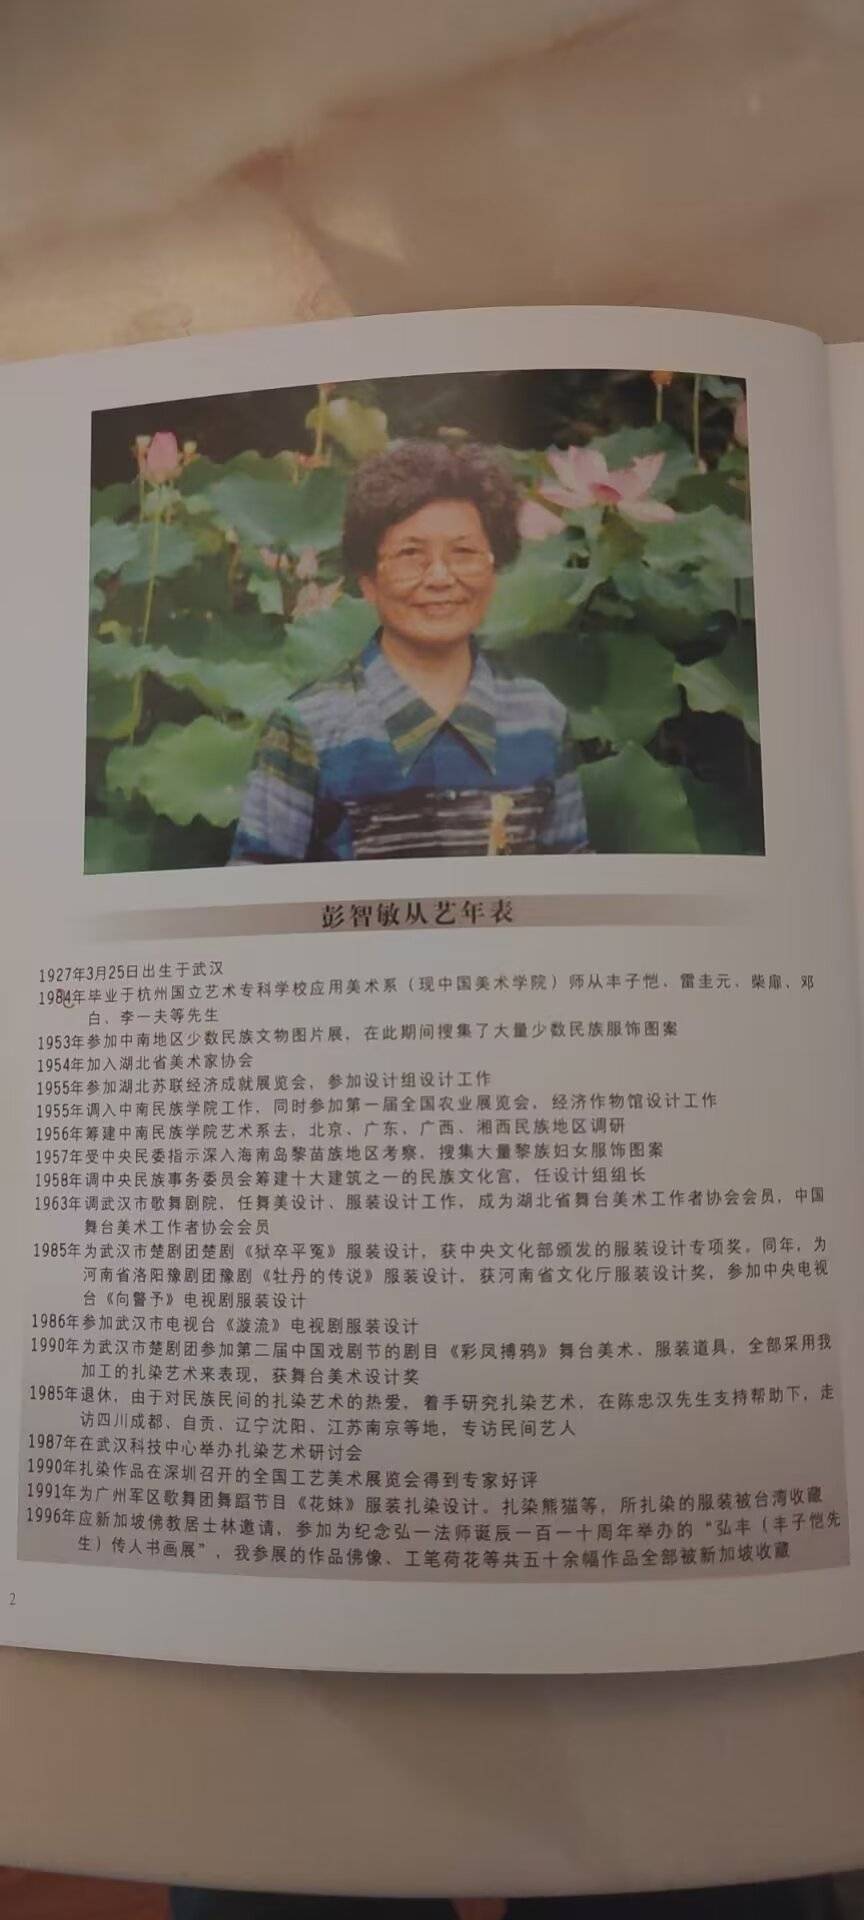 彭智敏从艺年表
1927年3月25日出生于武汉
1984年毕业于杭州国立艺术专科学校应用美术系（现中国美术学院）师从丰子恺、雷圭元、柴扉、邓
白、李一夫等先生
1953年参加中南地区少数民族文物图片展，在此期间搜集了大量少数民族服饰图案
1954年加入湖北省美术家协会
1955年参加湖北苏联经济成就展览会，参加设计组设计工作
1955年调入中南民族学院工作，同时参加第一届全国农业展览会，经济作物馆设计工作
1956年筹建中南民族学院艺术系去，北京、广东、广西、湘西民族地区调研
1957年受中央民委指示深入海南岛黎苗族地区考察，搜集大量黎族妇女服饰图案
1958年调中央民族事务委员会筹建十大建筑之一的民族文化宫，任设计组组长
1963年调武汉市歌舞剧院，任舞美设计、服装设计工作，成为湖北省舞台美术工作者协会会员，中国
舞台美术工作者协会会员
1985年为武汉市楚剧团楚剧《狱卒平冤》服装设计，获中央文化部颁发的服装设计专项奖。同年，为
河南省洛阳豫剧团豫剧《牡丹的传说》服装设计，获河南省文化厅服装设计奖，参加中央电视
台《向警予》电视剧服装设计
1986年参加武汉市电视台《漩流》电视剧服装设计
1990年为武汉市楚剧团参加第二届中国戏剧节的剧目《彩凤搏鸦》舞台美术、服装道具，全部采用我
加工的扎染艺术来表现，获舞台美术设计奖
1985年退休，由于对民族民间的扎染艺术的热爱，着手研究扎染艺术，在陈忠汉先生支持帮助下，走
访四川成都、自贡、辽宁沈阳、江苏南京等地，专访民间艺人
1987年在武汉科技中心举办扎染艺术研讨会
1990年扎染作品在深圳召开的全国工艺美术展览会得到专家好评
1991年为广州军区歌舞团舞蹈节目《花妹》服装扎染设计。扎染熊猫等，所扎染的服装被台湾收藏
1996年应新加坡佛教居士林邀请，参加为纪念弘一法师诞辰一百一十周年举办的“弘丰（丰子恺先
生）传人书画展”，我参展的作品佛像、工笔荷花等共五十余幅作品全部被新加坡收藏
2